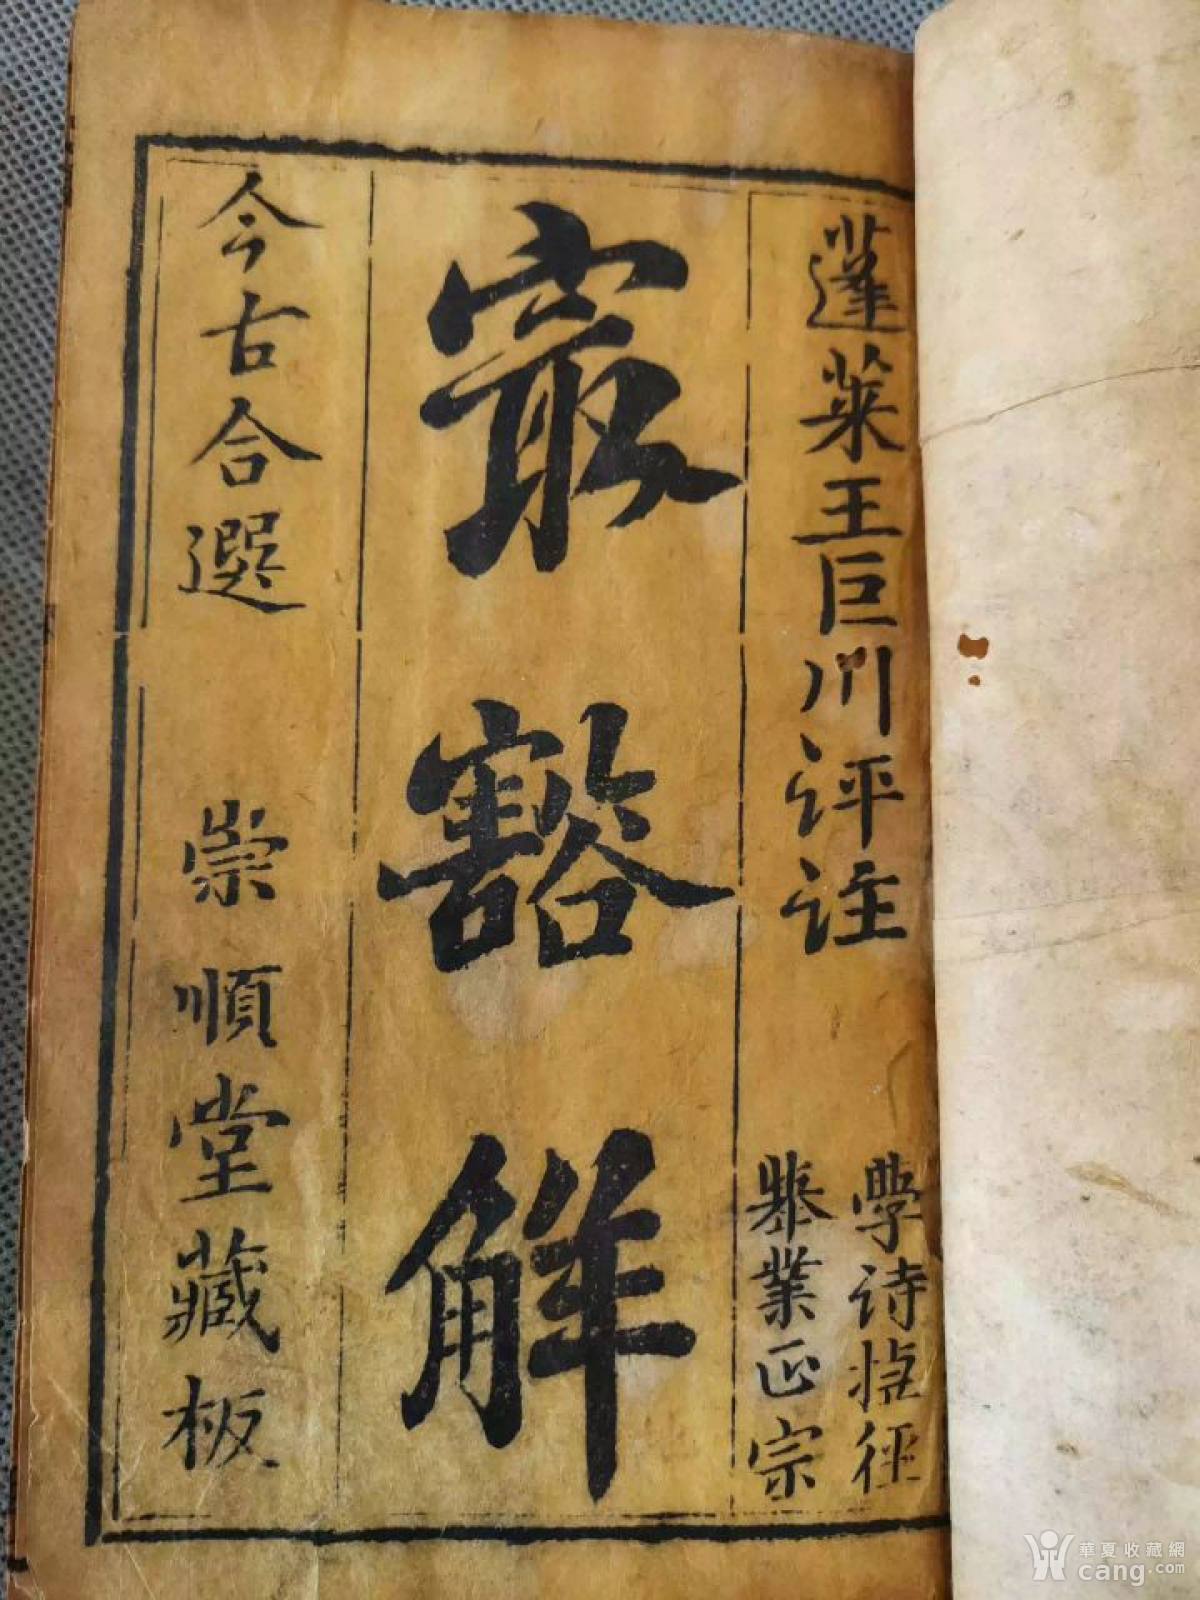 蓬萊王巨川评註
學诗捷径
舉業正宗
寂豁解
今古合選
崇順堂藏板
華夏收藏網
cang.com